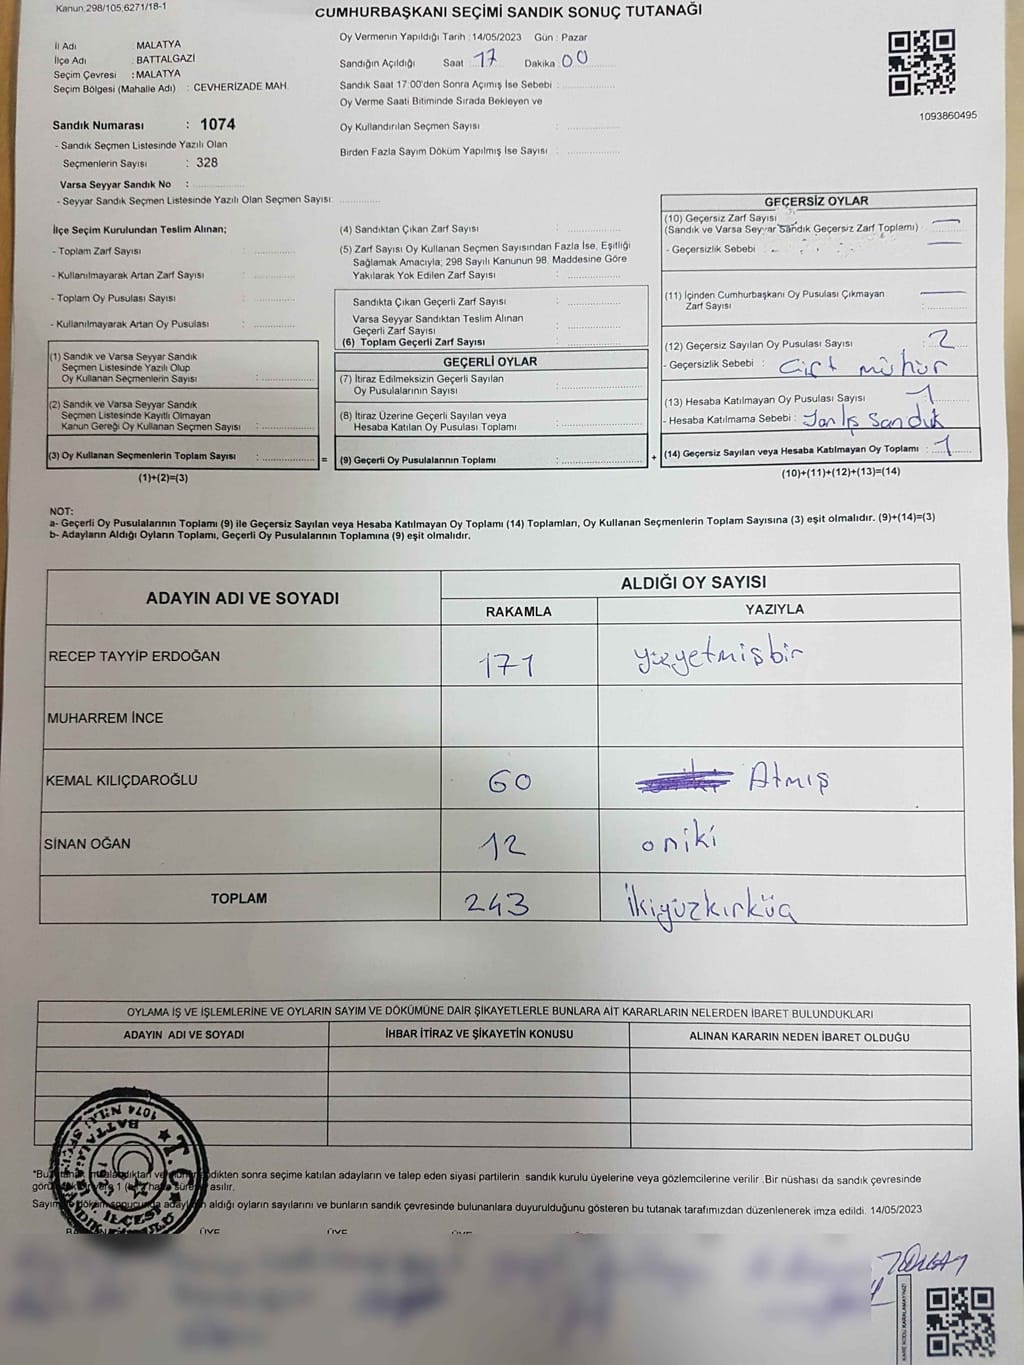 Kanun 298/105,6271/18-1
CUMHURBAŞKANI SEÇİMİ SANDIK SONUÇ TUTANAĞI
İl Adı : MALATYA
İlçe Adı : BATTALGAZİ
Seçim Çevresi : MALATYA
Seçim Bölgesi (Mahalle Adı) : CEVHERİZADE MAH.
Sandık Numarası : 1074
- Sandık Seçmen Listesinde Yazılı Olan
Seçmenlerin Sayısı : 328
Varsa Seyyar Sandık No :
- Seyyar Sandık Seçmen Listesinde Yazılı Olan Seçmen Sayısı:
Oy Vermenin Yapıldığı Tarih : 14/05/2023 Gün : Pazar
Sandığın Açıldığı Saat 17 Dakika 00
Sandık Saat 17:00'den Sonra Açımış İse Sebebi :
Oy Verme Saati Bitiminde Sırada Bekleyen ve
Oy Kullandırılan Seçmen Sayısı :
Birden Fazla Sayım Döküm Yapılmış İse Sayısı :
1093860495
İlçe Seçim Kurulundan Teslim Alınan;
- Toplam Zarf Sayısı :
- Kullanılmayarak Artan Zarf Sayısı :
- Toplam Oy Pusulası Sayısı :
- Kullanılmayarak Artan Oy Pusulası :
(1) Sandık ve Varsa Seyyar Sandık
Seçmen Listesinde Yazılı Olup
Oy Kullanan Seçmenlerin Sayısı :
(2) Sandık ve Varsa Seyyar Sandık
Seçmen Listesinde Kayıtlı Olmayan
Kanun Gereği Oy Kullanan Seçmen Sayısı :
(3) Oy Kullanan Seçmenlerin Toplam Sayısı : =
(1)+(2)=(3)
(4) Sandıktan Çıkan Zarf Sayısı :
(5) Zarf Sayısı Oy Kullanan Seçmen Sayısından Fazla İse, Eşitliği
Sağlamak Amacıyla; 298 Sayılı Kanunun 98. Maddesine Göre
Yakılarak Yok Edilen Zarf Sayısı :
Sandıkta Çıkan Geçerli Zarf Sayısı :
Varsa Seyyar Sandıktan Teslim Alınan
Geçerli Zarf Sayısı :
(6) Toplam Geçerli Zarf Sayısı :
GEÇERLİ OYLAR
(7) İtiraz Edilmeksizin Geçerli Sayılan
Oy Pusulalarının Sayısı :
(8) İtiraz Üzerine Geçerli Sayılan veya
Hesaba Katılan Oy Pusulası Toplamı :
(9) Geçerli Oy Pusulalarının Toplamı : +
GEÇERSİZ OYLAR
(10) Geçersiz Zarf Sayısı
(Sandık ve Varsa Seyyar Sandık Geçersiz Zarf Toplamı) : —
- Geçersizlik Sebebi : —
(11) İçinden Cumhurbaşkanı Oy Pusulası Çıkmayan —
Zarf Sayısı :
(12) Geçersiz Sayılan Oy Pusulası Sayısı : 2
- Geçersizlik Sebebi : Çift mühür
(13) Hesaba Katılmayan Oy Pusulası Sayısı : 1
- Hesaba Katılmama Sebebi : Yanlış Sandık
(14) Geçersiz Sayılan veya Hesaba Katılmayan Oy Toplamı : 1
(10)+(11)+(12)+(13)=(14)
NOT:
a- Geçerli Oy Pusulalarının Toplamı (9) ile Geçersiz Sayılan veya Hesaba Katılmayan Oy Toplamı (14) Toplamları, Oy Kullanan Seçmenlerin Toplam Sayısına (3) eşit olmalıdır. (9)+(14)=(3)
b- Adayların Aldığı Oyların Toplamı, Geçerli Oy Pusulalarının Toplamına (9) eşit olmalıdır.
ADAYIN ADI VE SOYADI ALDIĞI OY SAYISI
RAKAMLA YAZIYLA
RECEP TAYYİP ERDOĞAN 171 yüzyetmişbir
MUHARREM İNCE
KEMAL KILIÇDAROĞLU 60 Atmış
SİNAN OĞAN 12 oniki
TOPLAM 243 İkiyüzkırküç
OYLAMA İŞ VE İŞLEMLERİNE VE OYLARIN SAYIM VE DÖKÜMÜNE DAİR ŞİKAYETLERLE BUNLARA AİT KARARLARIN NELERDEN İBARET BULUNDUKLARI
ADAYIN ADI VE SOYADI İHBAR İTİRAZ VE ŞİKAYETİN KONUSU ALINAN KARARIN NEDEN İBARET OLDUĞU
*Bu dikten sonra seçime katılan adayların ve talep eden siyasi partilerin sandık kurulu üyelerine veya gözlemcilerine verilir .Bir nüshası da sandık çevresinde
asılır.
aldığı oyların sayılarını ve bunların sandık çevresinde bulunanlara duyurulduğunu gösteren bu tutanak tarafımızdan düzenlenerek imza edildi. 14/05/2023
ÜYE ÜYE ÜYE
T.C. BATTALGAZİ İLÇESİ 1074